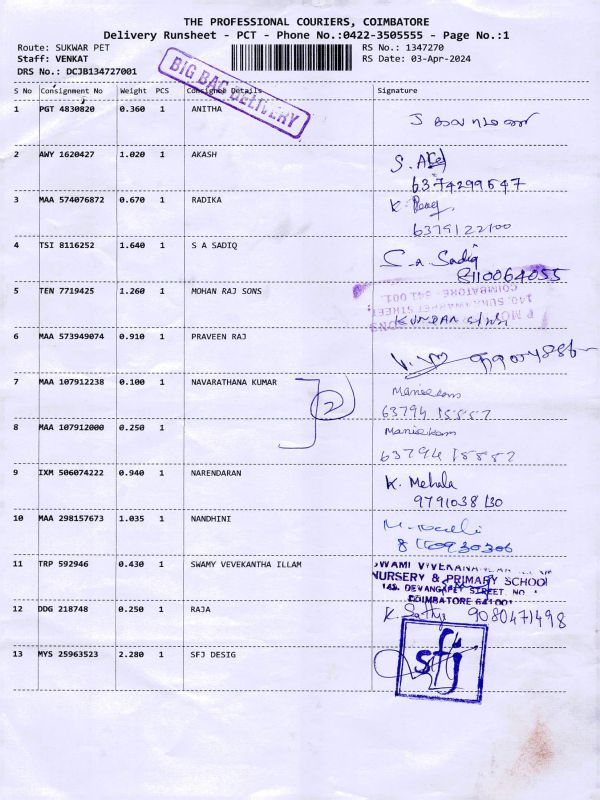 THE PROFESSIONAL COURIERS, COIMBATORE
Delivery Runsheet - PCT - Phone No.:0422-3505555 - Page No.:1
Route: SUKWAR PET RS No.: 1347270
Staff: VENKAT RS Date: 03-Apr-2024
DRS No.: DCJB134727001
BIG BAG DELIVERY
S No Consignment No Weight PCS Consignee Details Signature
1 PGT 4830820 0.360 1 ANITHA
2 AWY 1620427 1.020 1 AKASH
6374299547
3 MAA 574076872 0.670 1 RADIKA
6379122100
4 TSI 8116252 1.640 1 S A SADIQ S.a. Sadiq
8110064055
5 TEN 7719425 1.260 1 MOHAN RAJ SONS
COIMBATORE - 641 001.
6 MAA 573949074 0.910 1 PRAVEEN RAJ
7 MAA 107912238 0.100 1 NAVARATHANA KUMAR Manickam
63794 15552
2
8 MAA 107912000 0.250 1 Manickam
63794 15552
9 IXM 506074222 0.940 1 NARENDARAN K. Mehala
9791038130
10 MAA 298157673 1.035 1 NANDHINI
11 TRP 592946 0.430 1 SWAMY VEVEKANTHA ILLAM
NURSERY & PRIMARY SCHOOL
DEVANGAPET STREET, NO
COIMBATORE 641001
12 DDG 218748 0.250 1 RAJA K. Sathya 9080471498
13 MYS 25963523 2.280 1 SFJ DESIG sfj